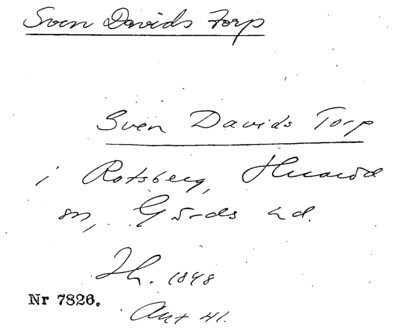 Sven Davids Torp
Sven Davids Torp
i Rotsberg,
sn, Gärds hd.
Jh. 1848
Nr 7826.
Ant 41.